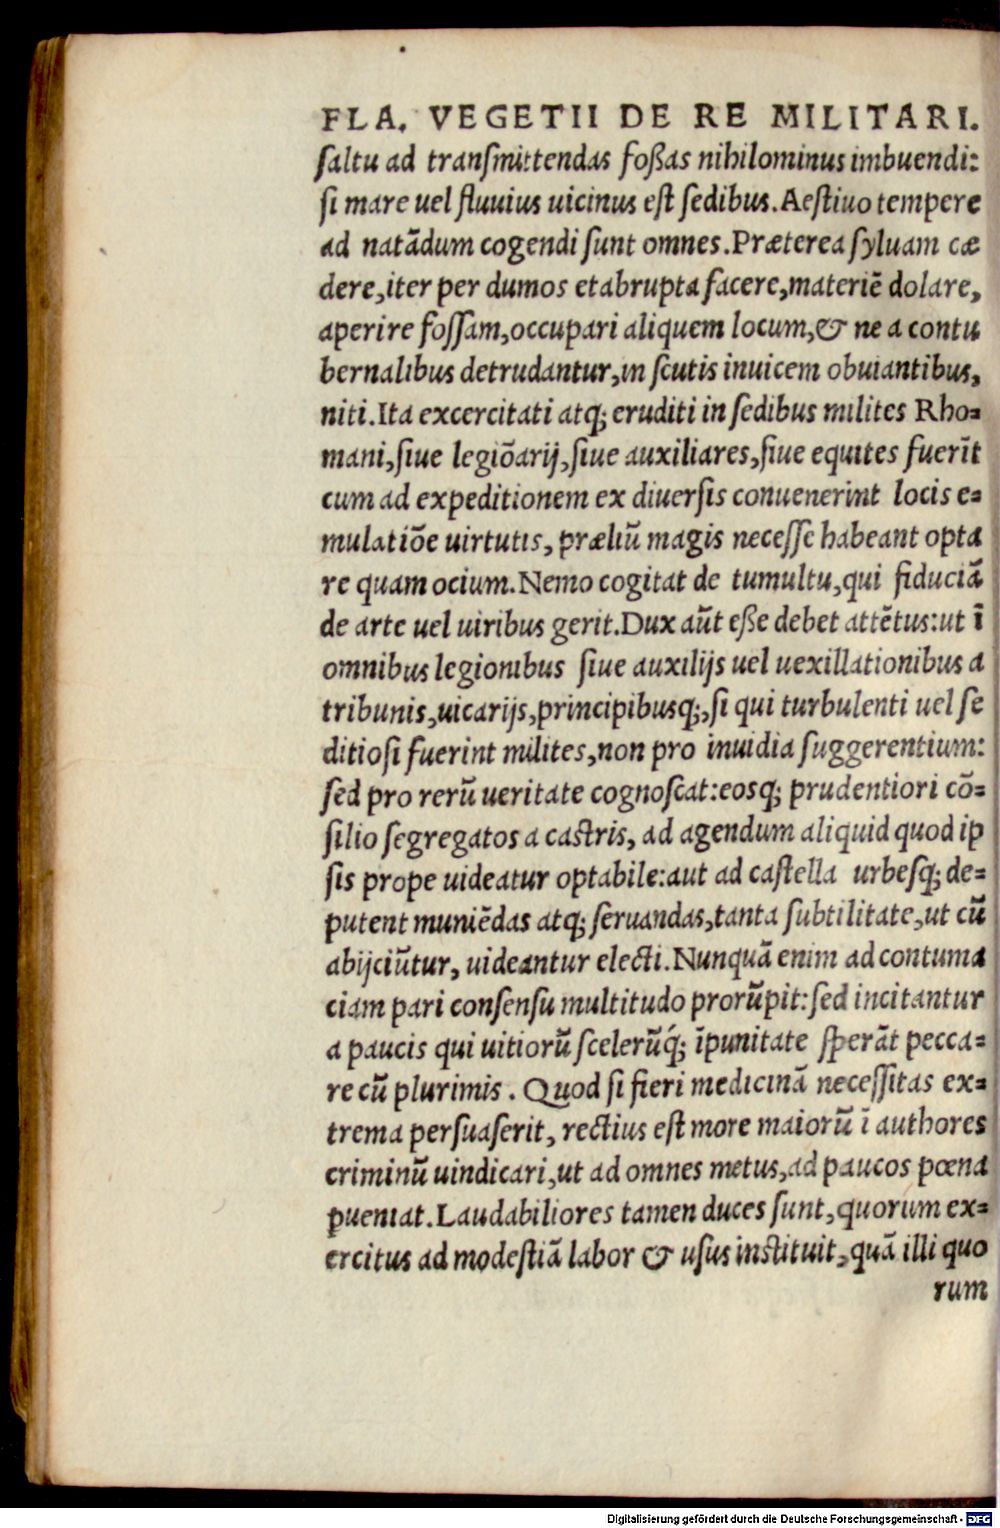 FLA. VEGETII DE RE MILITARI.
ſaltu ad tranſmittendas foßas nihilominus imbuendi:
ſi mare uel fluuius uicinus eſt ſedibus. Aeſtiuo tempere
ad natādum cogendi ſunt omnes. Præterea ſyluam cæ
dere, iter per dumos et abrupta facere, materiē dolare,
aperire foſſam, occupari aliquem locum, & ne a contu
bernalibus detrudantur, in ſcutis inuicem obuiantibus,
niti. Ita excercitati atq; eruditi in ſedibus milites Rho-
mani, ſiue legiōarij, ſiue auxiliares, ſiue equites fuerīt
cum ad expeditionem ex diuerſis conuenerint locis e-
mulatiōe uirtutis, præliū magis neceſſe habeant opta
re quam ocium. Nemo cogitat de tumultu, qui fiduciā
de arte uel uiribus gerit. Dux aūt eße debet attētus: ut ī
omnibus legionibus ſiue auxilijs uel uexillationibus a
tribunis, uicarijs, principibusq;, ſi qui turbulenti uel ſe
ditioſi fuerint milites, non pro inuidia ſuggerentium:
ſed pro rerū ueritate cognoſcat: eosq; prudentiori cō-
ſilio ſegregatos a caſtris, ad agendum aliquid quod ip
ſis prope uideatur optabile: aut ad caſtella urbeſq; de-
putent muniēdas atq; ſeruandas, tanta ſubtilitate, ut cū
abijciūtur, uideantur electi. Nunquā enim ad contuma
ciam pari conſenſu multitudo prorūpit: ſed incitantur
a paucis qui uitiorū ſcelerūq́; īpunitate ſperāt pecca-
re cū plurimis. Quod ſi fieri medicinā neceſſitas ex-
trema perſuaſerit, rectius eſt more maiorū ī authores
criminū uindicari, ut ad omnes metus, ad paucos pœna
ꝑueniat. Laudabiliores tamen duces ſunt, quorum ex-
ercitus ad modeſtiā labor & uſus inſtituit, quā illi quo
rum
Digitalisierung gefördert durch die Deutsche Forschungsgemeinschaft - DFG